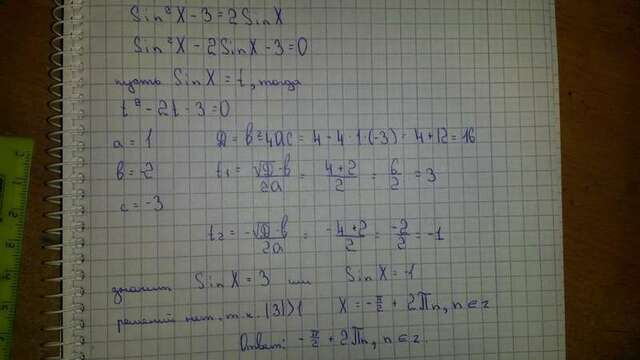 Sin²X - 3 = 2SinX
Sin²X - 2SinX - 3 = 0
пусть SinX = t, тогда
t² - 2t - 3 = 0
a = 1 D = b² - 4ac = 4 - 4·1·(-3) = 4 + 12 = 16
b = -2 t₁ = (√D - b)/2a = (4+2)/2 = 6/2 = 3
c = -3
t₂ = (-√D - b)/2a = (-4+2)/2 = -2/2 = -1
значит SinX = 3 или SinX = -1
решений нет, т.к. |3|>1 X = -π/2 + 2πn, n∈z
Ответ: -π/2 + 2πn, n∈z.